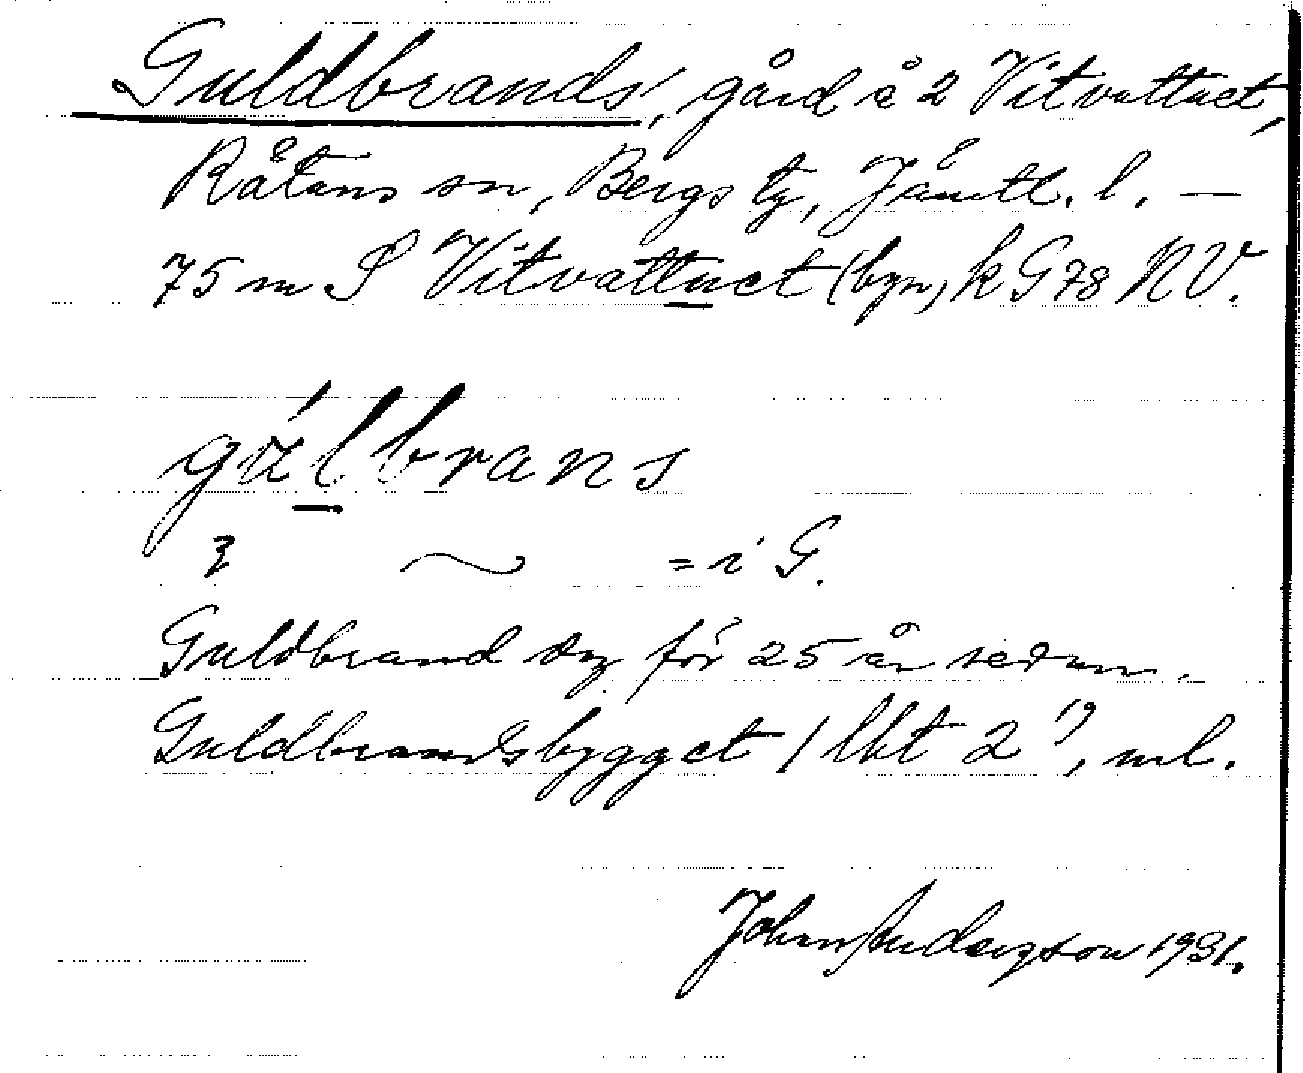 Guldbrands, gård å 2 Vitvattnet,
Råtans sn, Bergs tg, Jämtl. l. —
75 m S Vitvattnet (byn) k G 78 NV.
brans
~ = i G.
Guldbrand dog för 25 år sedan.
Guldbrandsbygget / lht 2¹⁹, ml.
John Andersson 1931.